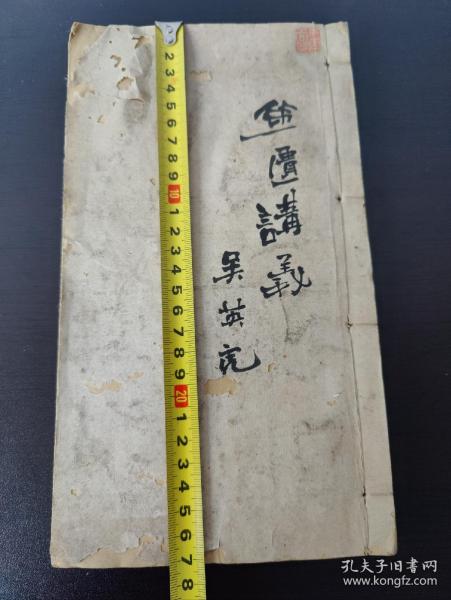 匱講義
吴英亮
2 3 4 5 6 7 8 9 10 1 2 3 4 5 6 7 8 9 20 1 2 3 4 5 6 7 8
孔夫子旧书网
www.kongfz.com